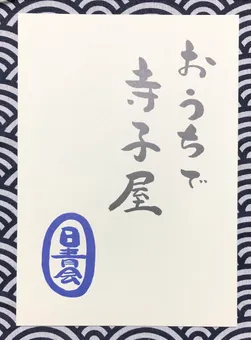 おうちで
寺子屋
日書会